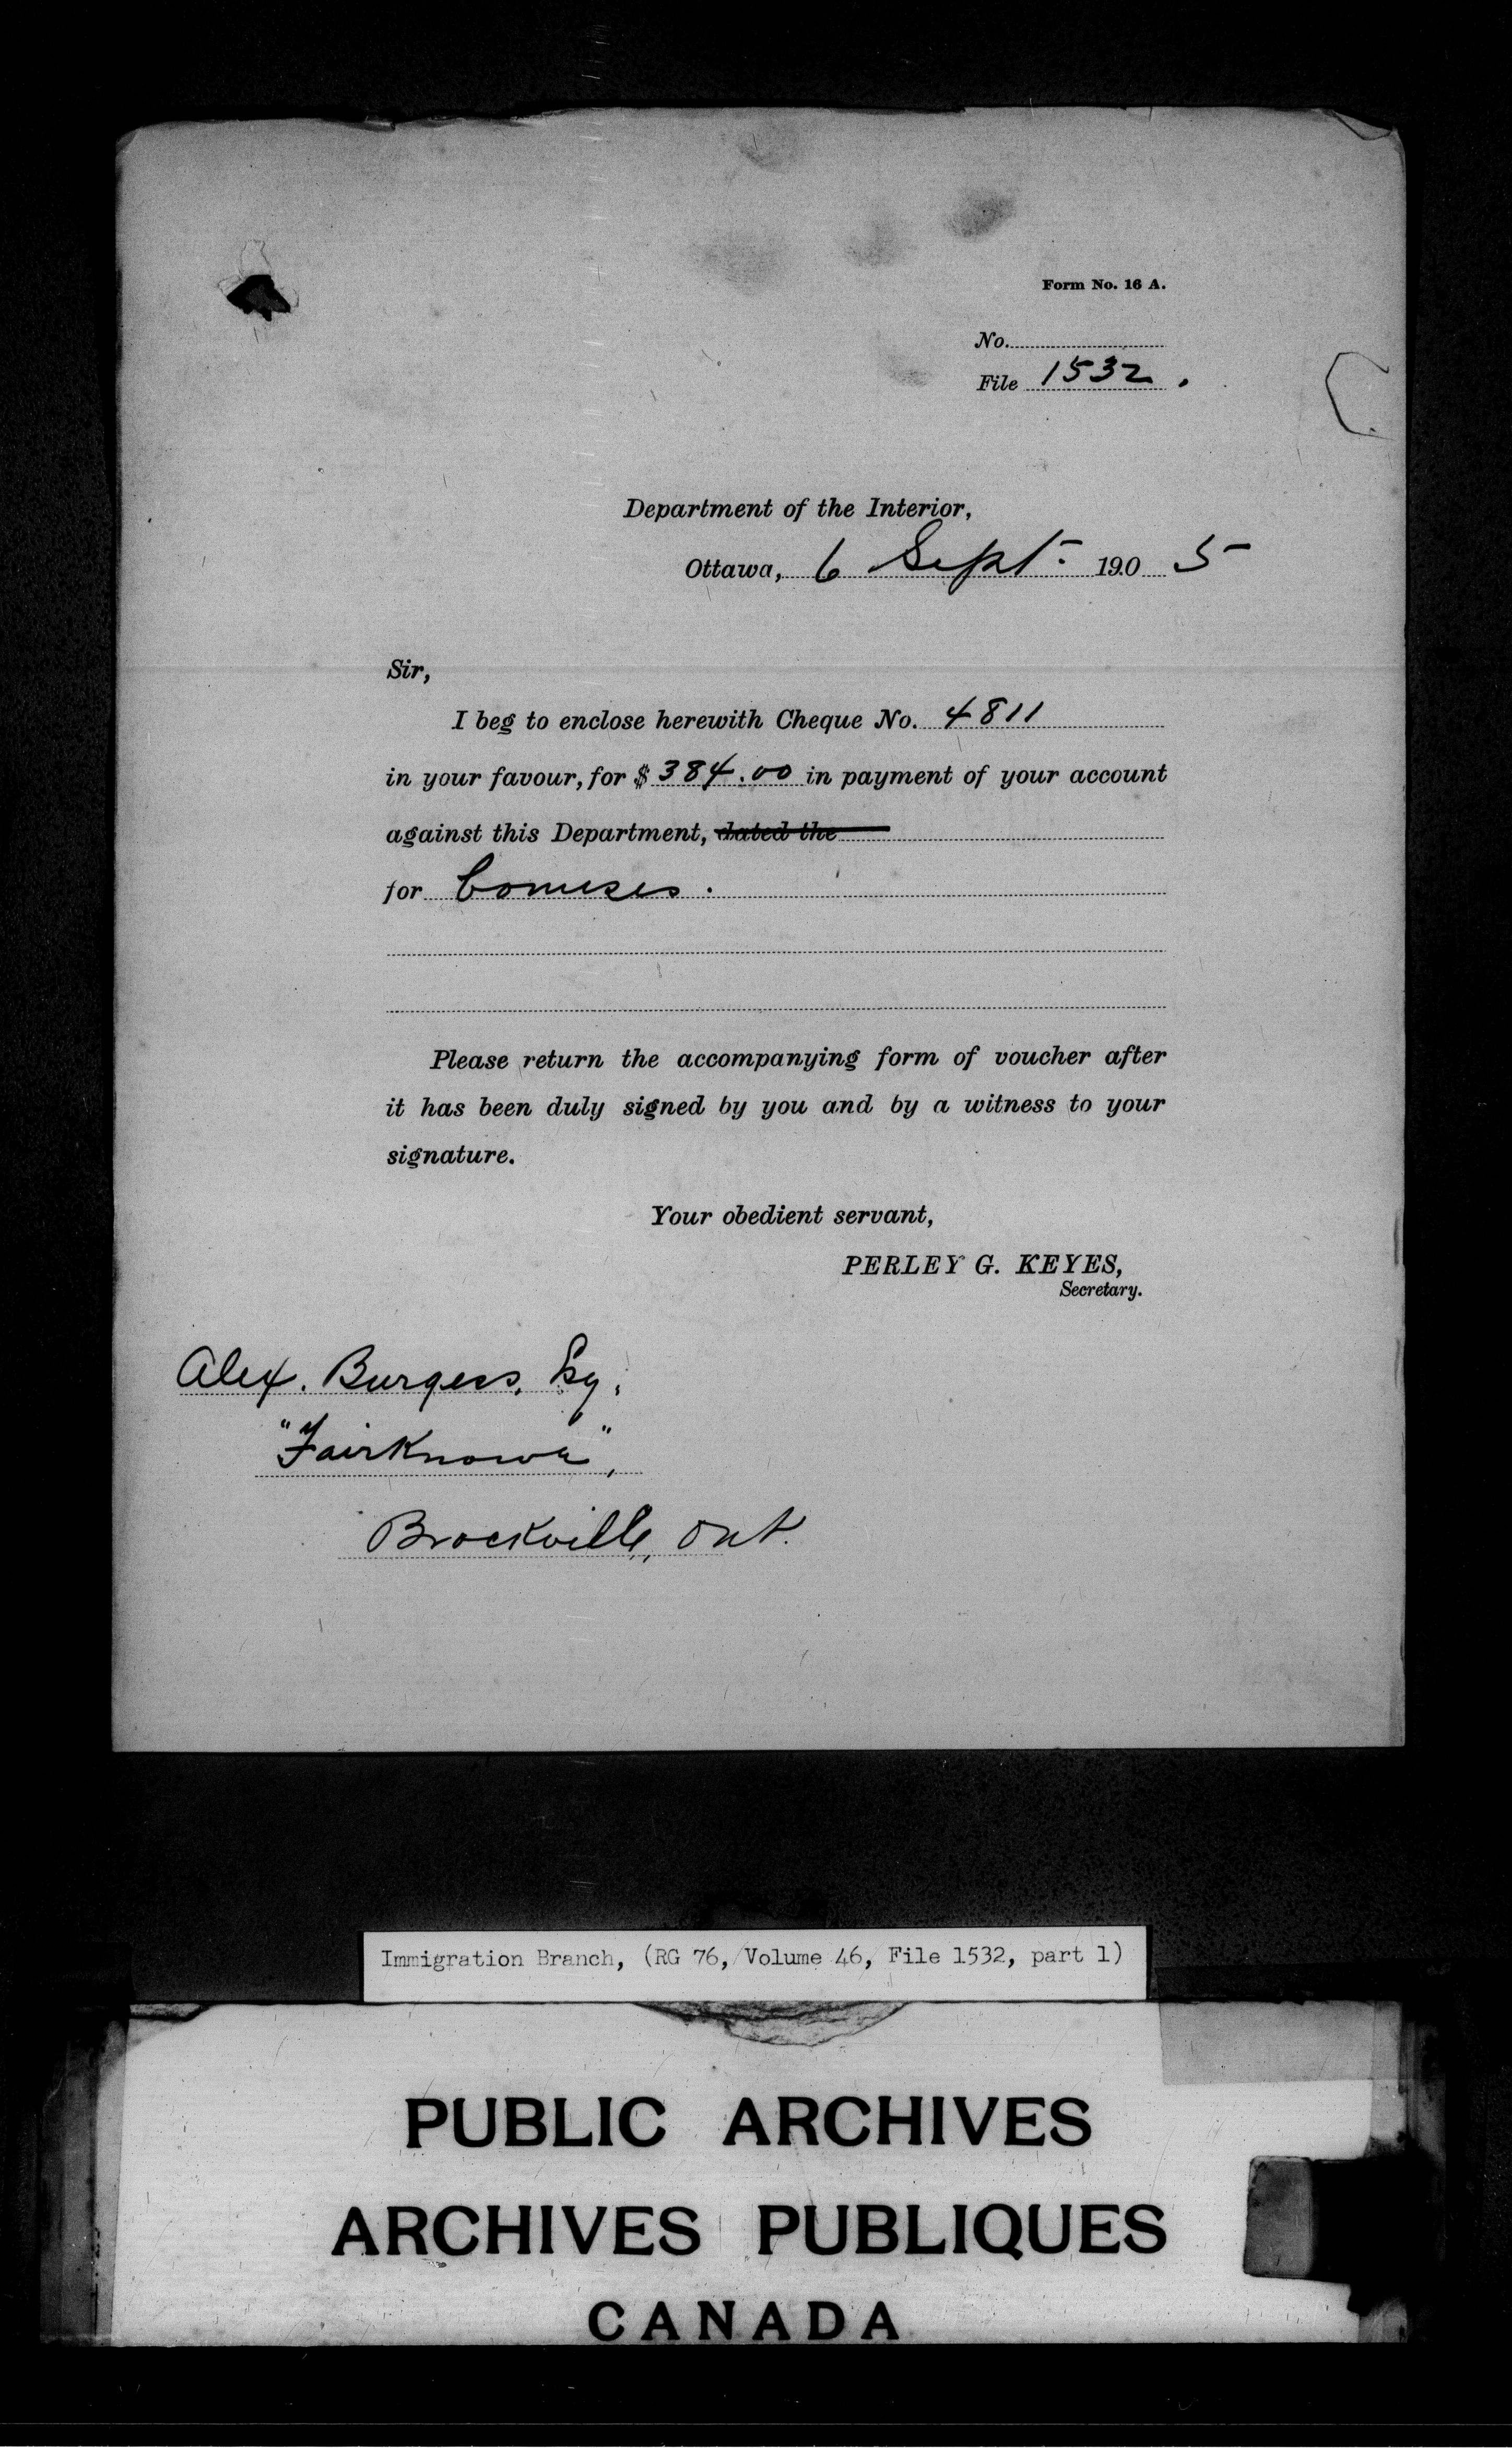 Form No. 16 A.
No.
File 1532.
Department of the Interior,
Ottawa, 6 Sept. 1905
Sir,
I beg to enclose herewith Cheque No. 4811
in your favour, for $ 384.00 in payment of your account
against this Department, dated the
for bonuses.
Please return the accompanying form of voucher after
it has been duly signed by you and by a witness to your
signature.
Your obedient servant,
PERLEY G. KEYES,
Secretary.
Alex. Burgess, Esq,
"Fairknowe",
Brockville, Ont.
Immigration Branch, (RG 76, Volume 46, File 1532, part 1)
PUBLIC ARCHIVES
ARCHIVES PUBLIQUES
CANADA